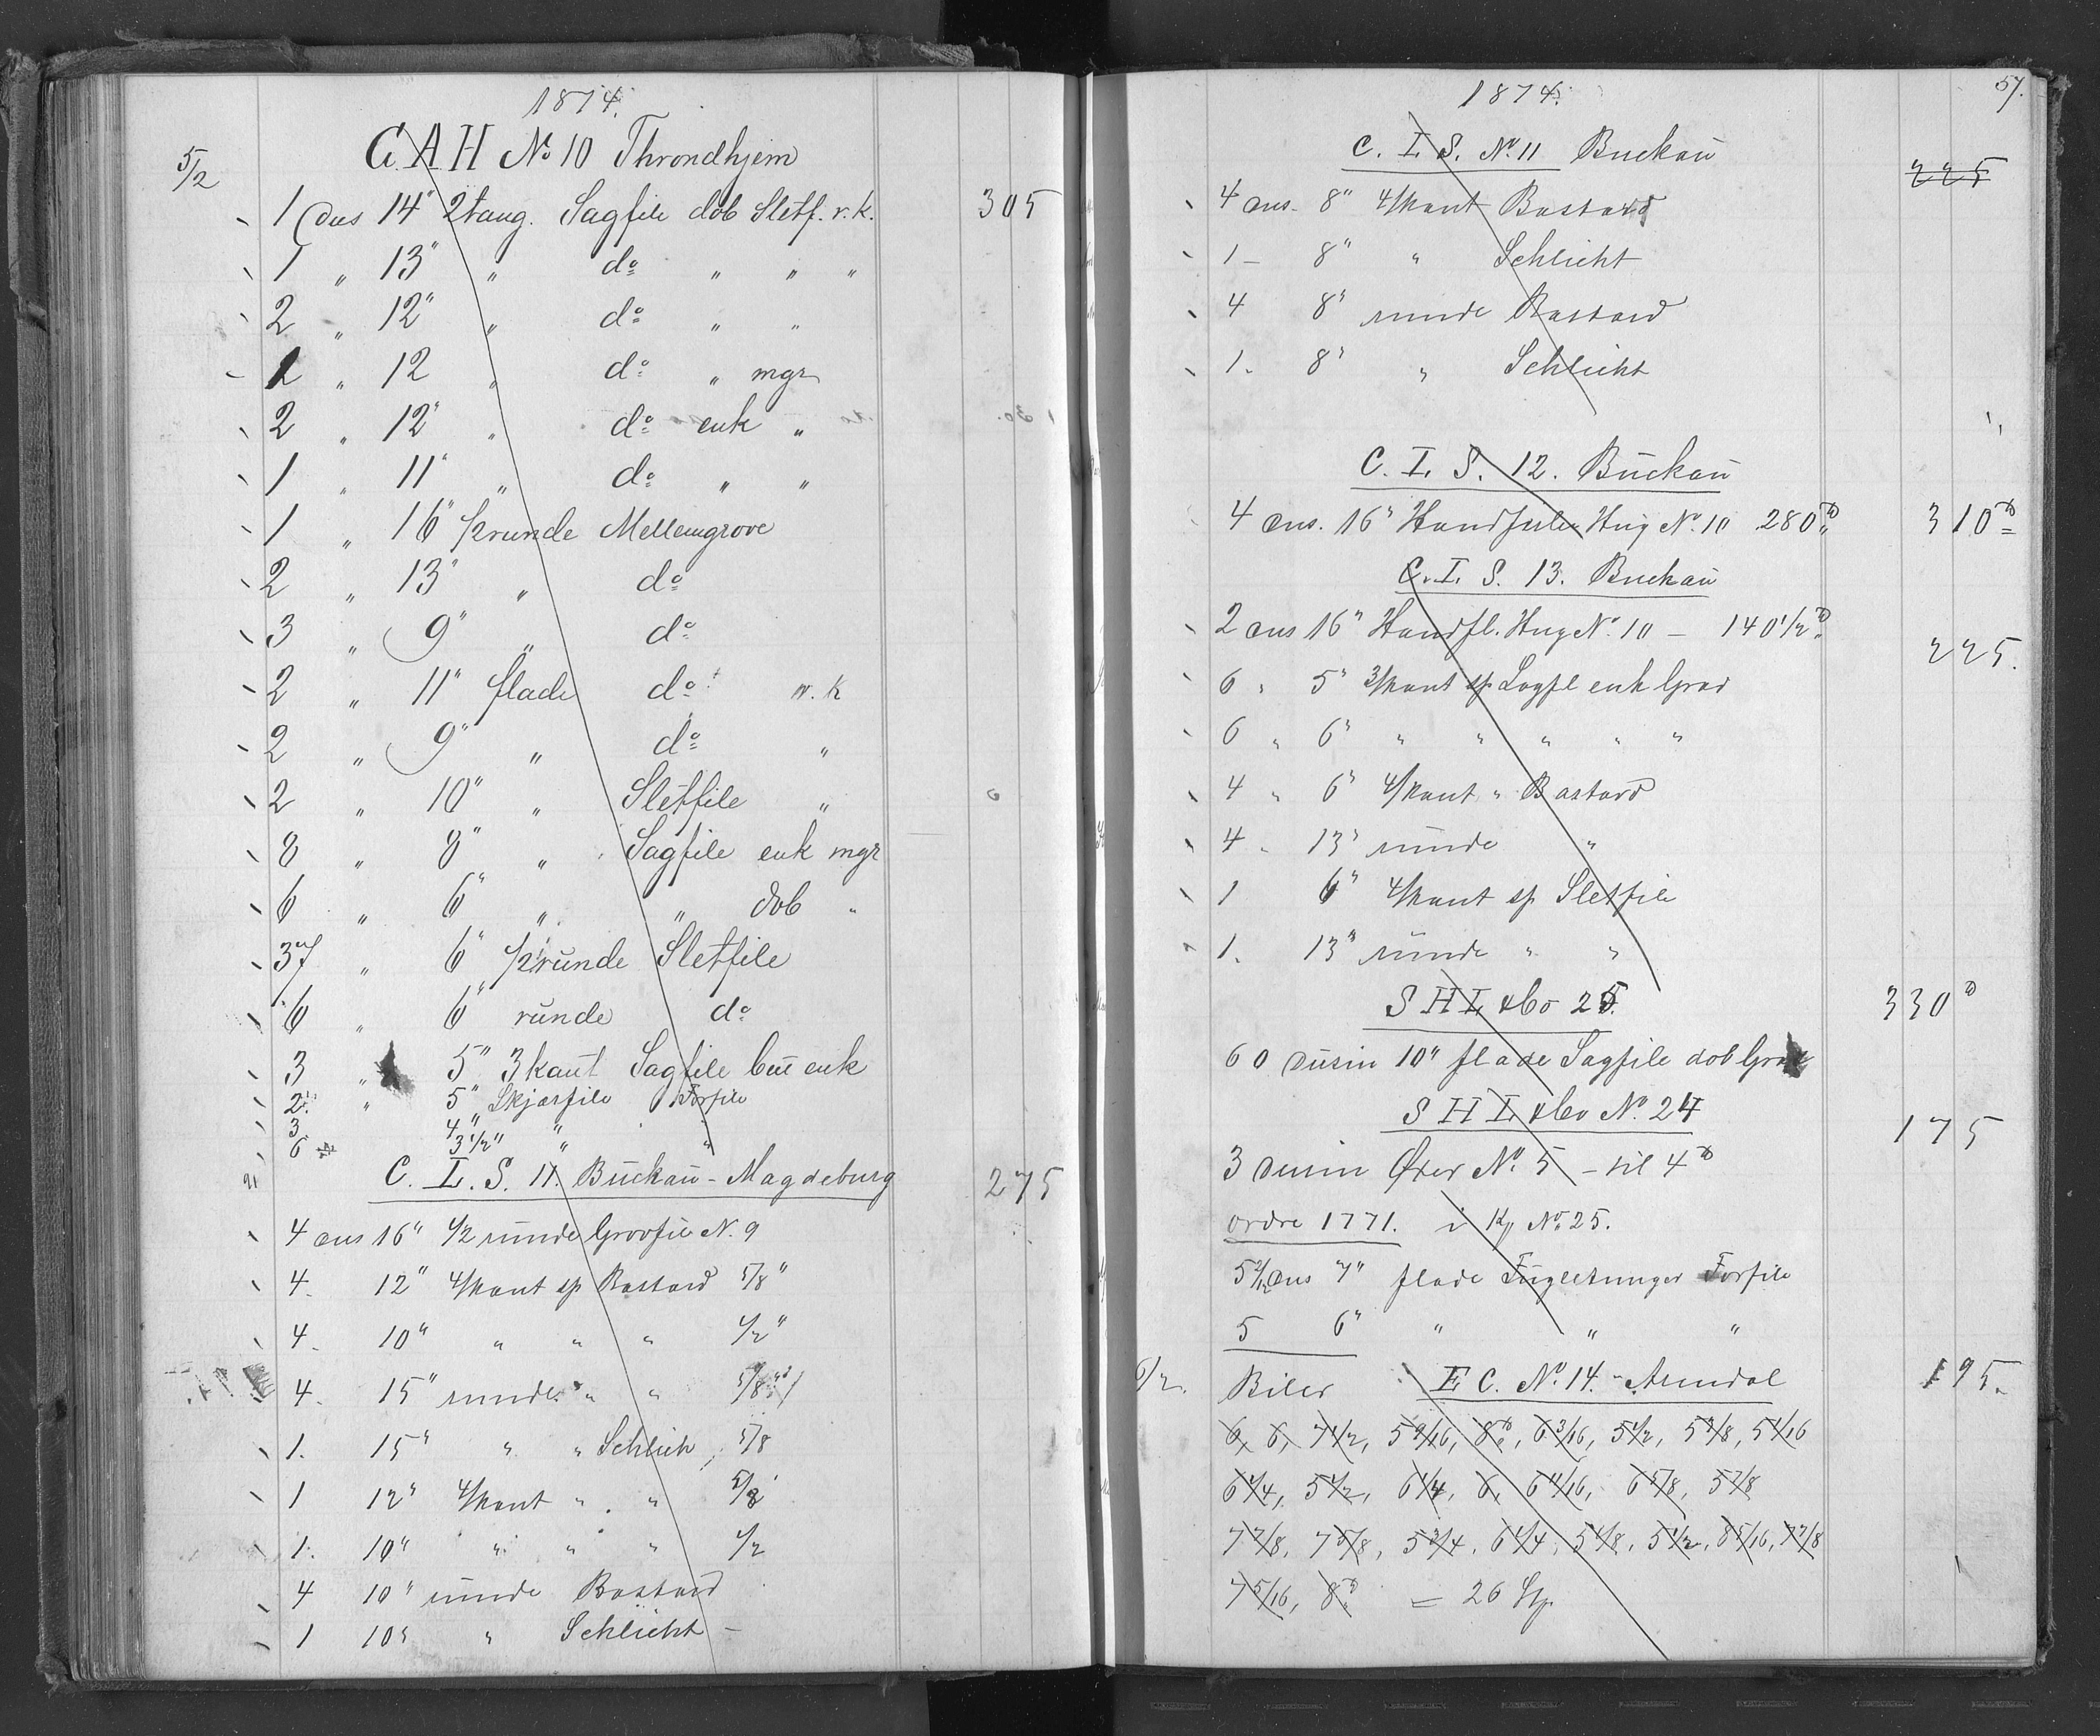 1874.
5/2
C. A H No 10 Throndhjem
1 dus 14" 2 tang. Sagfile dob Sletf. v. k. 305
1 " 13" " do " " "
2 " 12" " do " "
1 " 12 " do " mgr
2 " 12" " do enk "
1 " 11" " do " "
1 " 16" 1/2 runde Mellemgrove
2 " 13" " do
3 " 9" " do
2 " 11" flade do v. k
2 " 9" " do "
2 " 10" " Sletfile "
8 " 8" " Sagfile enk mgr
6 " 6" " " dob "
37 " 6" 1/2 runde Sletfile
6 " 6" runde do
3 " 5" 3kant Sagfile enk
2 " 5" Skjærfile Forfile
3 4" "
6 3 1/2" " "
C. I. S. 11. Buckau - Magdeburg 275
4 dus 16" 1/2 runde Grovfile N. 9
4. 12" 4/kant sp Bastard 5/8"
4. 10" " " " 1/2"
4. 15" runde " " 5/8"
1. 15" " " Schlich, 5/8
1 12" 4/kant " " 5/8
1. 10" " " " 1/2
4 10" runde Bastard
1 10" " Schlicht -
57.
1874.
C. I. S. No. 11 Buckau 225
4 dus. 8" 4/kant Bastard
1 - 8" " Schlicht
4 8" runde Bastard
1. 8" " Schlicht
C. I. S. 12. Buckau
4 dus. 16" Handfile Hug No. 10 280 ℔ 310 ℔
C. I. S. 13. Buckau
2 dus 16" Handfl. Hug No. 10 - 140 1/2 ℔
225.
6 " 5" 3/kant sp Sagfl enk Grad
6 " 6" " " " " "
4 " 6" 4/kant " Bastard
4 " 13" runde "
1 6" 4/kant sp Sletfile
1. 13" runde " "
S H L & Co 25. 330 ℔
60 dusin 10" flade Sagfile dob
S H L & Co No. 24 175
3 dusin Øxer No. 5 - til 4 ℔
ordre 1771. i Kp No. 25.
5 1/2 dus 7" flade Fugletunger Forfile
5 6" " " "
6/2. Biler E C. No. 14. - Arendal 195.
6, 6, 7 1/2, 5 9/16, 8 ℔, 6 3/16, 5 1/2, 5 7/8, 5 1/16
6 1/4, 5 1/2, 6 1/4, 6, 6 1/16, 6 5/8, 5 7/8
7 7/8, 7 5/8, 5 3/4, 6 1/4, 5 1/8, 5 1/2, 8 5/16, 7 7/8
7 5/16, 8 ℔ = 26 Stp.